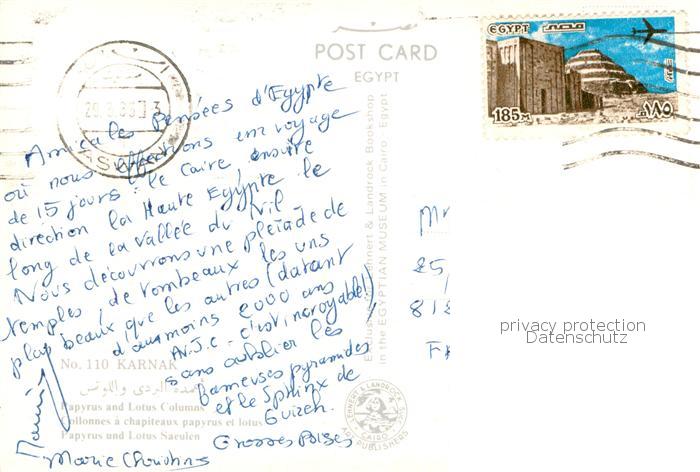 POST CARD
EGYPT
EGYPT مصر
185M ١٨٥م
ASWAN
Amicales Pensées d'Egypte
où nous effectuons un voyage
de 15 jours : le Caire ensuite
direction la Haute Egypte le
long de la vallée du Nil
Nous découvrons une pleïade de
temples, de tombeaux les uns
plus beaux que les autres (datant
d'au moins 2000 ans
A.J.C - c'est incroyable!)
sans oublier les
fameuses pyramides
et le Sphinx de
Guizeh.
Grosses Bises
Marie
No. 110 KARNAK
أعمدة البردى واللوتس
Papyrus and Lotus Columns
Collonnes à chapiteaux papyrus et lotus
Papyrus und Lotus Saeulen
Lehnert & Landrock Bookshop
in the EGYPTIAN MUSEUM in Cairo - Egypt
LEHNERT & LANDROCK
CAIRO
ART PUBLISHERS
privacy protection
Datenschutz